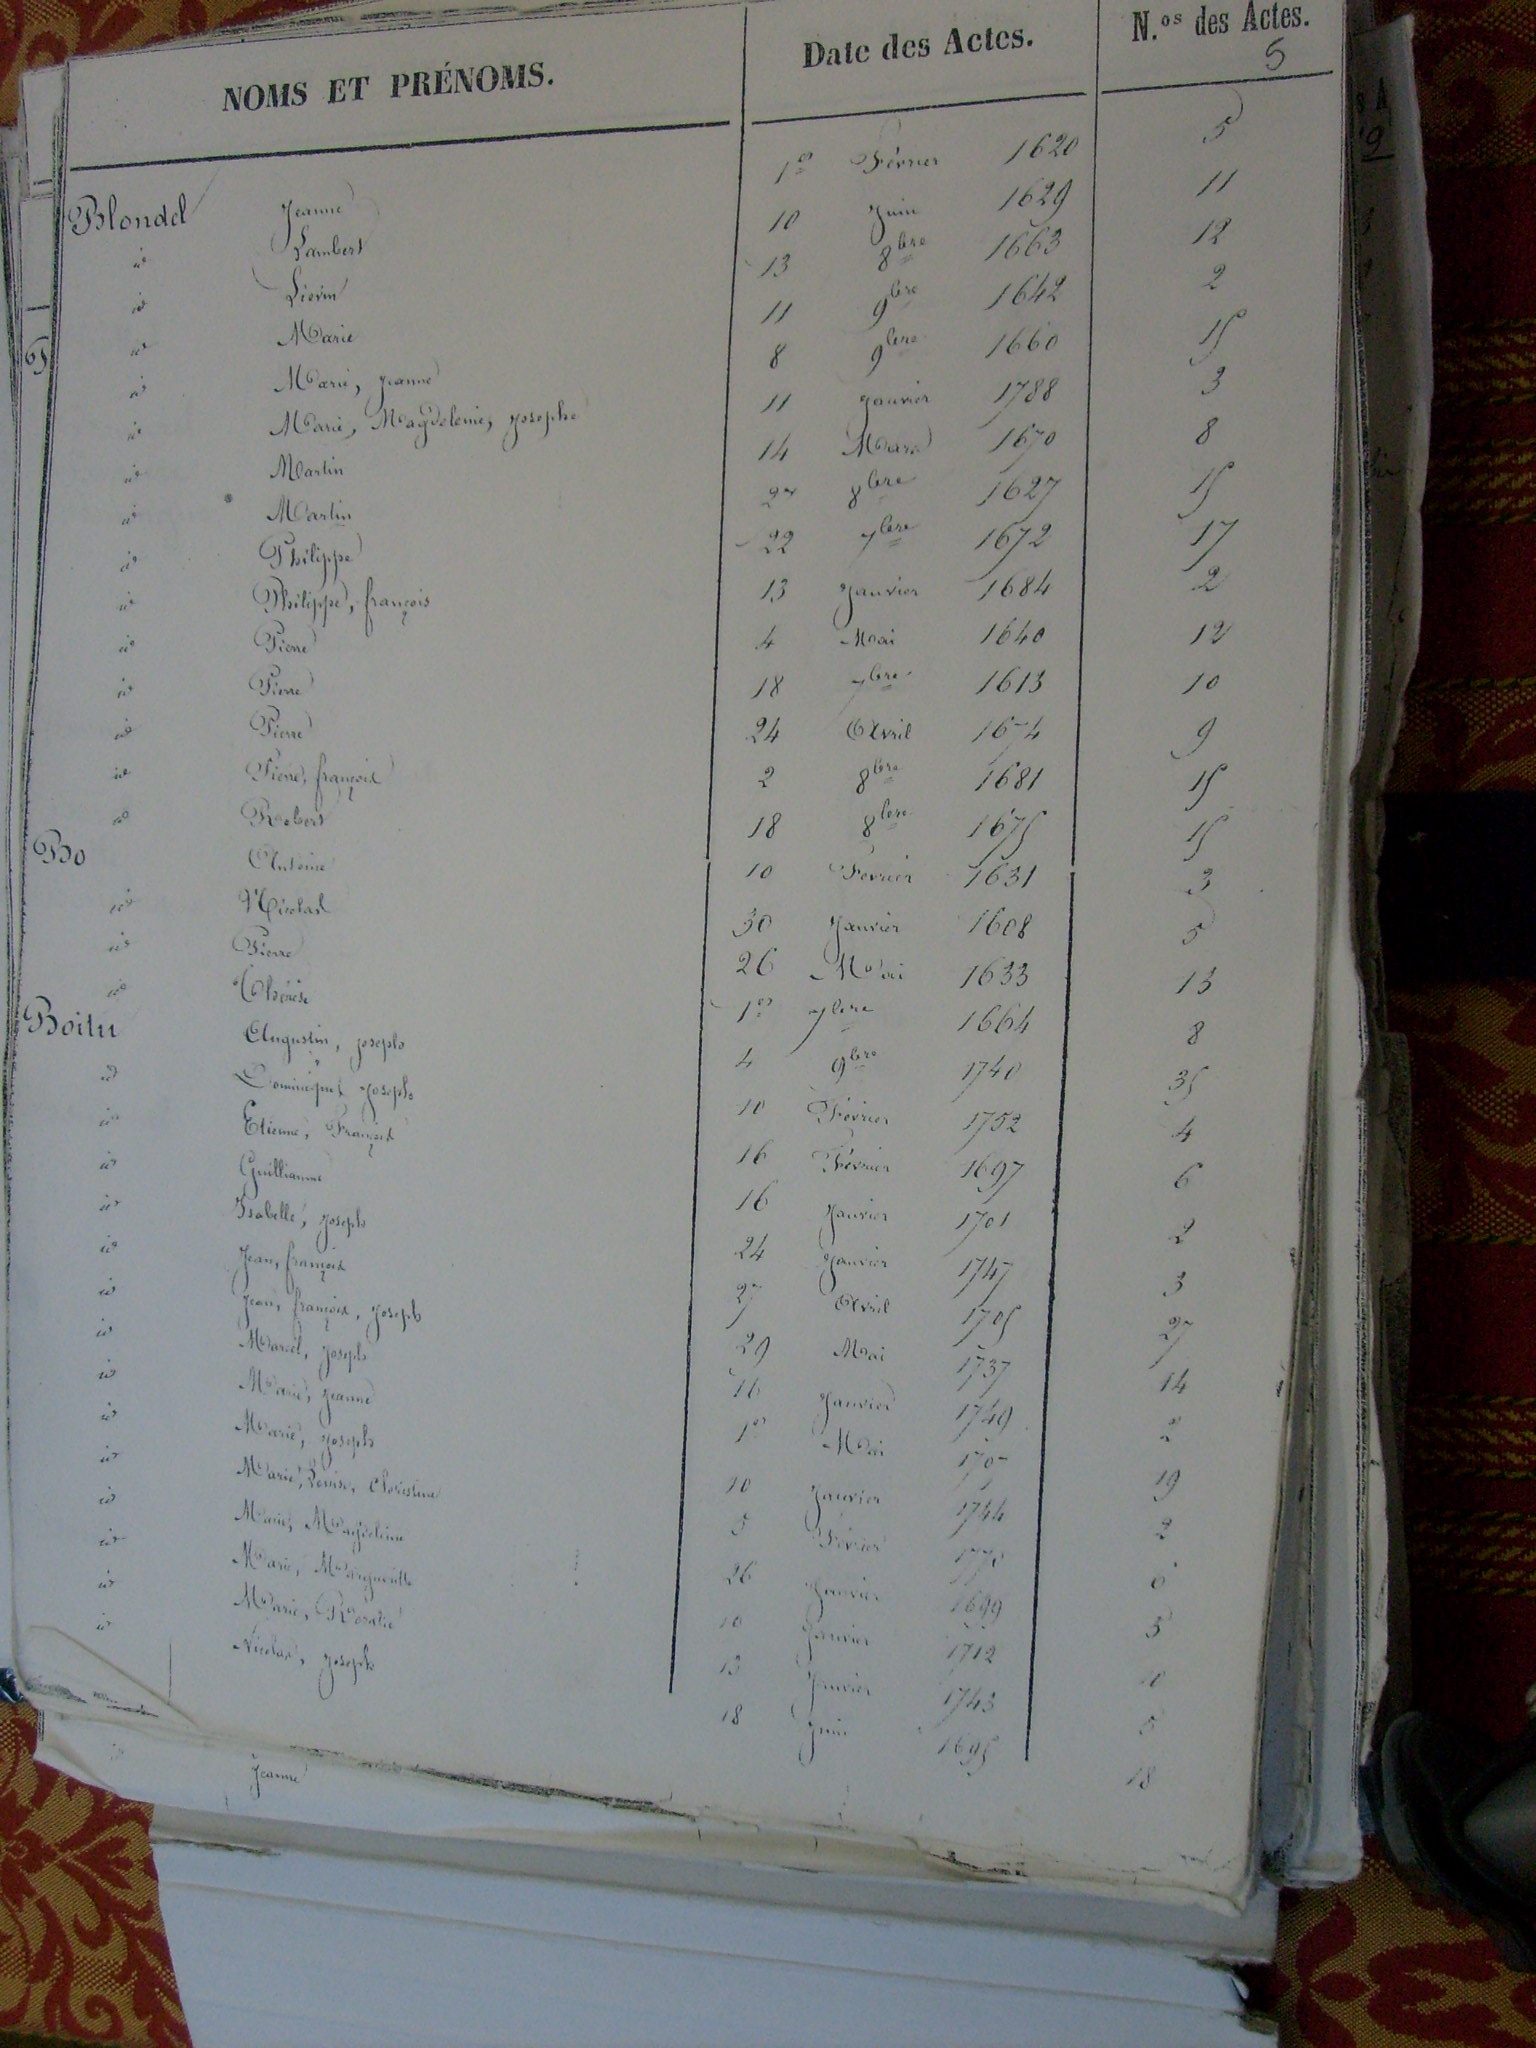 NOMS ET PRÉNOMS. Date des Actes. N.os des Actes.
5
Blondel Jeanne 1er Février 1620 5
id Lambert 10 Juin 1629 11
id Lievin 13 8bre 1663 12
id Marie 11 9bre 1642 2
id Marie, Jeanne 8 9bre 1660 15
id Marie, Magdeleine, Josephe 11 Janvier 1788 3
id Martin 14 Mars 1670 8
id Martin 27 8bre 1627 15
id Philippe 22 7bre 1672 17
id Philippe, françois 13 Janvier 1684 2
id Pierre 4 Mai 1640 12
id Pierre 18 7bre 1613 10
id Pierre 24 Avril 1674 9
id Pierre, françois 2 8bre 1681 15
id Robert 18 8bre 1675 15
Bo Antoine 10 Février 1631 3
id Nicolas 30 Janvier 1608 5
id Pierre 26 Mai 1633 13
id Thérèse 1er 7bre 1664 8
Boitu Augustin, Joseph 4 9bre 1740 35
id Dominique Joseph 10 Février 1752 4
id Etienne, François 16 Février 1697 6
id Guillianne 16 Janvier 1701 2
id Isabelle, Joseph 24 Janvier 1747 3
id Jean, françois 27 Avril 1705 27
id Jean, françois, Joseph 29 Mai 1737 14
id Marie, Joseph 16 Janvier 1749 2
id Marie, Jeanne 1er Mai 19
id Marie, Joseph 10 Janvier 1744 2
id Marie, Louise, Christine 5 Février 6
id Marie, Magdeleine 26 Janvier 1699 5
id Marie, Marguerite 10 Janvier 1712 10
id Marie, Rosalie 13 Janvier 1743 5
id Nicolas, Joseph 18 Juin 1695 18
Jeanne